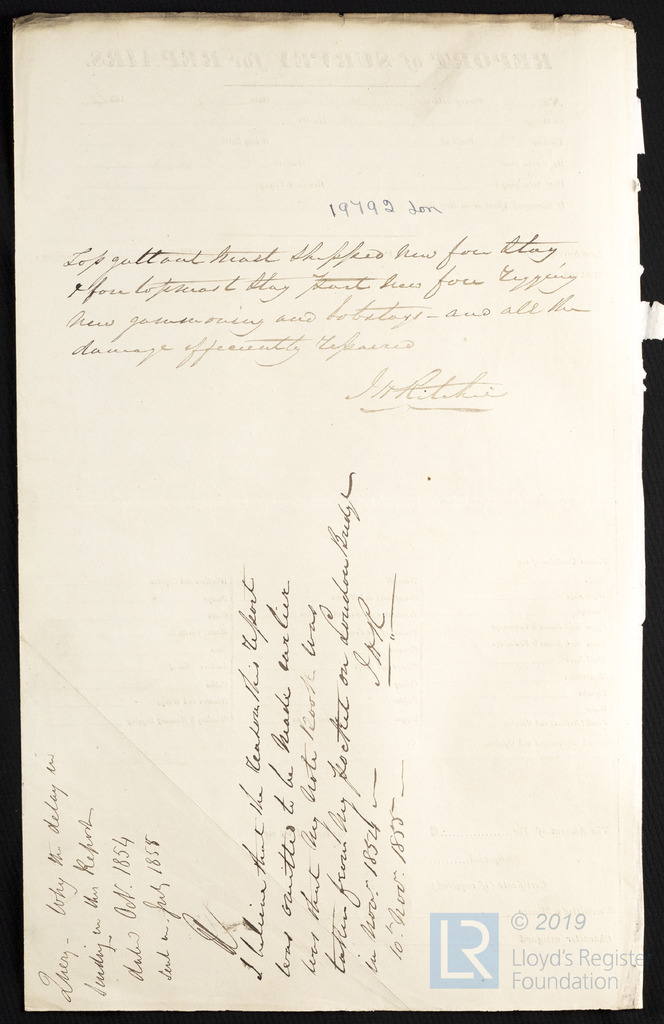 19792 Lon
Topgallant Mast Shipped New fore Stay
& fore topmast Stay part New fore Rigging
New gammoning and bobstays - and all the
damage efficiently repaired
J H Ritchie
Query - Why the delay in
sending in this Report
dated Oct. 1854
sent in July 1855
I believe that the reason this report
was omitted to be made earlier
was that my note book was
taken from my pocket on London Bridge
in Novr. 1854 -
10th Novr. 1855 -
J H R
© 2019
LR
Lloyd's Register
Foundation